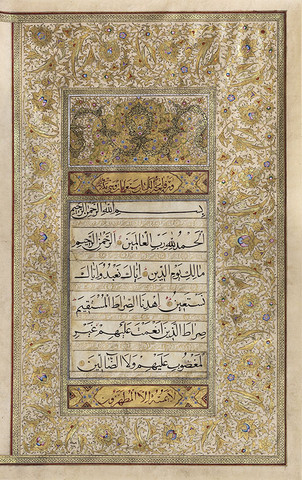 فاتحة الكتاب سبع ايات
بسم الله الرحمن الرحيم
الحمد لله رب العالمين الرحمن الرحيم
مالك يوم الدين اياك نعبد واياك
نستعين اهدنا الصراط المستقيم
صراط الذين انعمت عليهم غير
المغضوب عليهم ولا الضالين
لا يمسه الا المطهرون